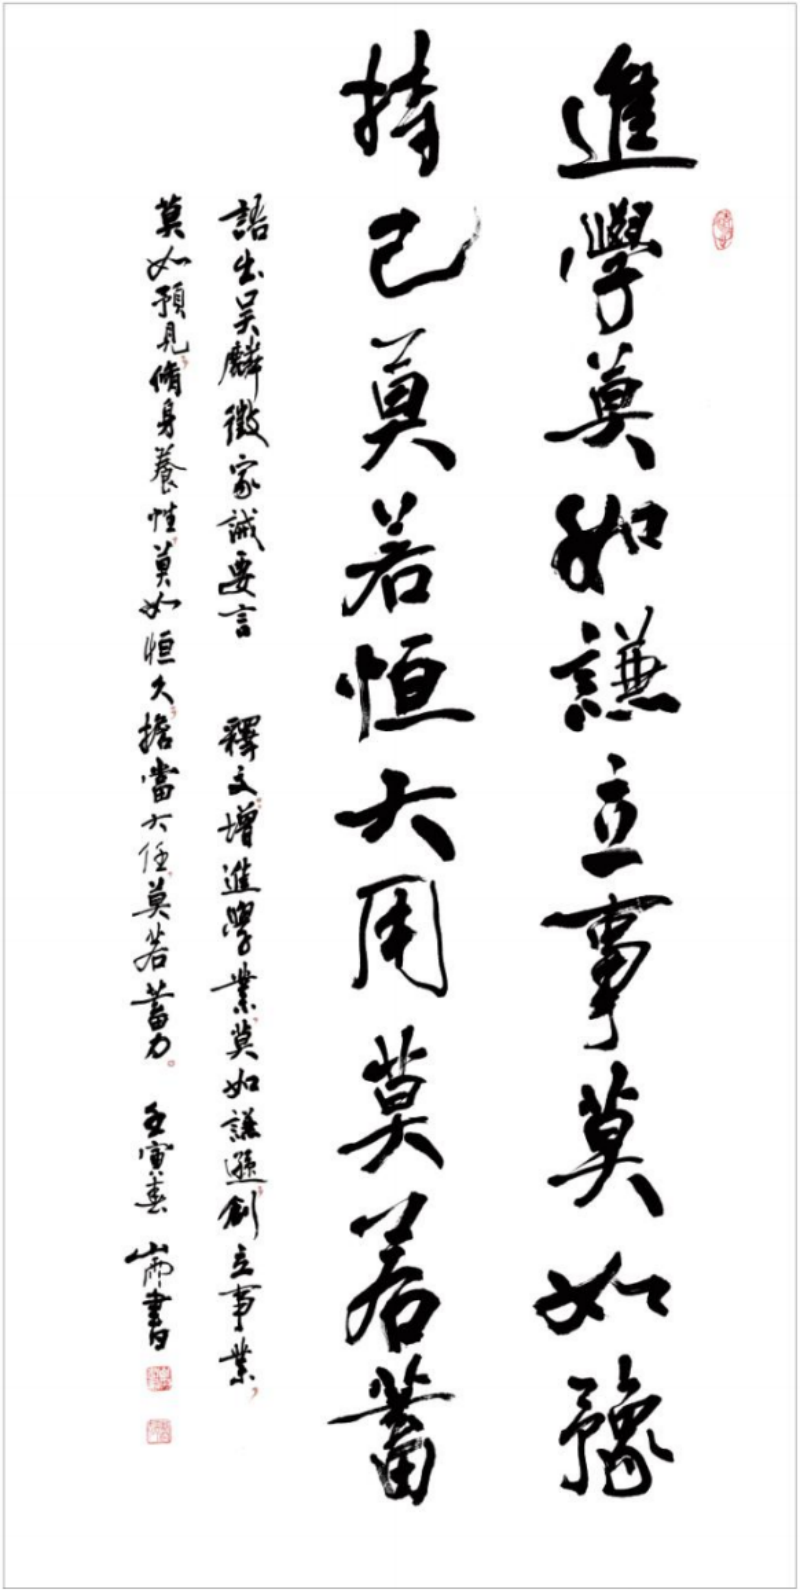 進學莫如謙立事莫如豫
持己莫若恒大用莫若蓄
語出吴麟徵家誡要言 釋文增進學業莫如謙遜創立事業,
莫如預見,脩身養性,莫如恒久,擔當大任,莫若蓄力。 壬寅春 山雨書